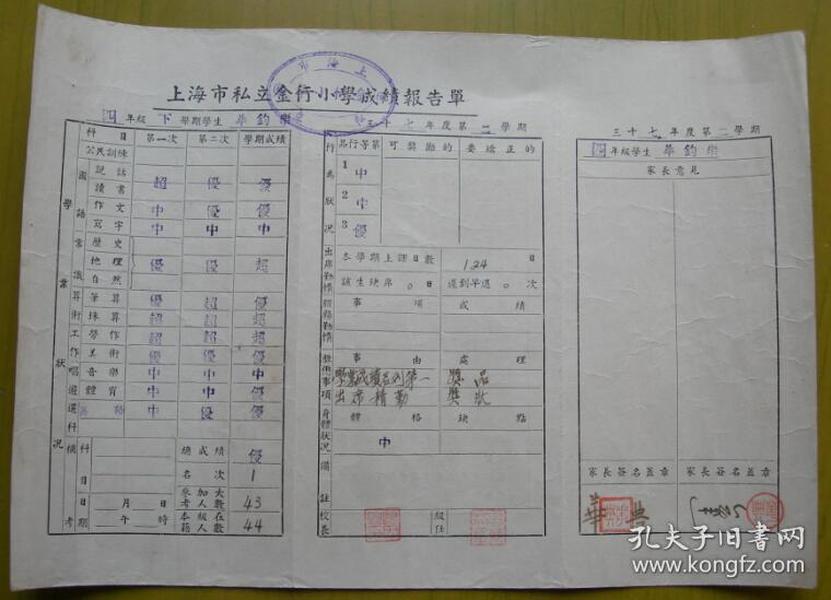 上海市私立金行小學成績報告單
四年級下學期學生 華鈞樂 三十七年度第二學期
科目 第一次 第二次 學期成績
公民訓練
國語
說話
讀書 超 優 優
作文 中 優 優
寫字 中 中 中
常識
歷史
地理 優 優 超
自然
算術
筆算 優 超 優
珠算 超 超 超
工作
勞作 超 超 超
美術 優 優 優
唱遊
音樂 中 中 中
體育 中 中 優
選科
中 優 優
學業狀況
總成績 優
名次 1
參加大考人數 43
本級在籍人數 44
補考
科目
日期 月 日 午 時
行為狀況
品行等第 可獎勵的 要矯正的
1 中
2 中
3 優
出席勤惰
本學期上課日數 124
該生缺席 0 日 遲到早退 0 次
服務勤惰
事項 成績
獎懲事項
事由 處理
學業成績名列第一 獎品
出席精勤 獎狀
身體狀況
體格 缺點
中
備註
校長 級任
三十七年度第二學期
四年級學生 華鈞樂
家長意見
家長簽名蓋章 家長簽名蓋章
孔夫子旧书网
www.kongfz.com